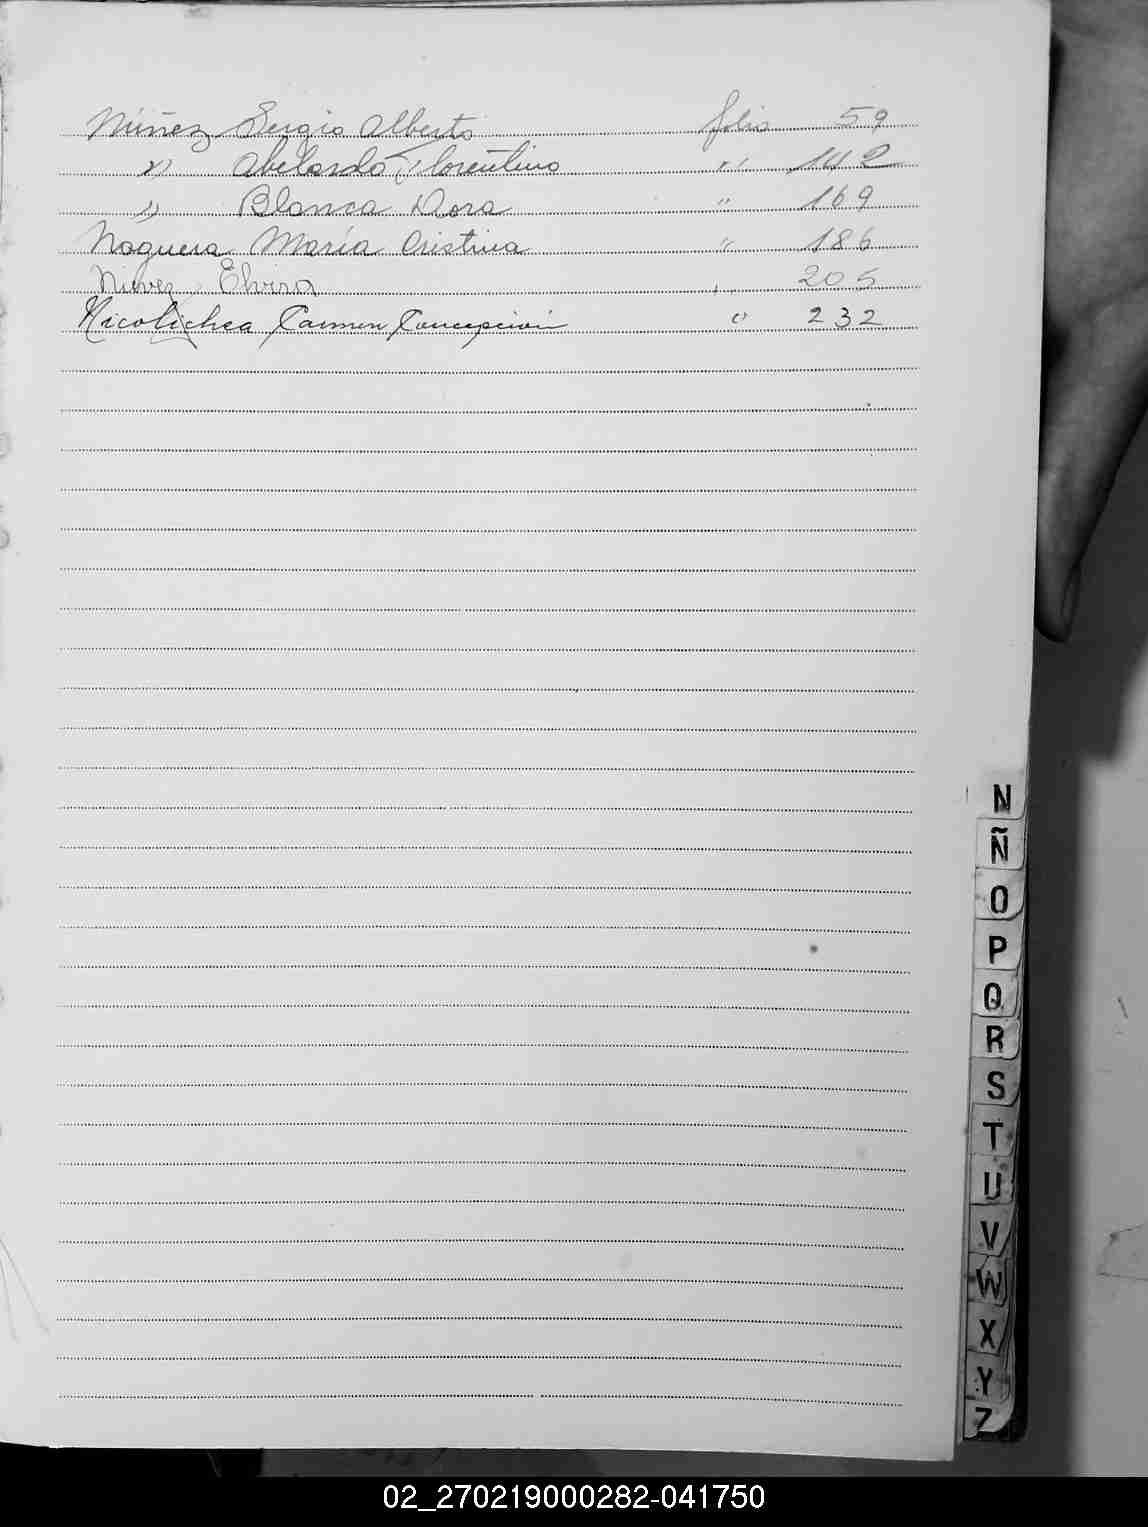 Núñez Sergio Alberto folio 59
" Abelardo Florentino " 142
" Blanca Dora " 169
Noguera María Cristina " 186
Nuvez Elvira " 205
Carmen Concepción " 232
N
Ñ
O
P
Q
R
S
T
U
V
W
X
Y
Z
02_270219000282-041750